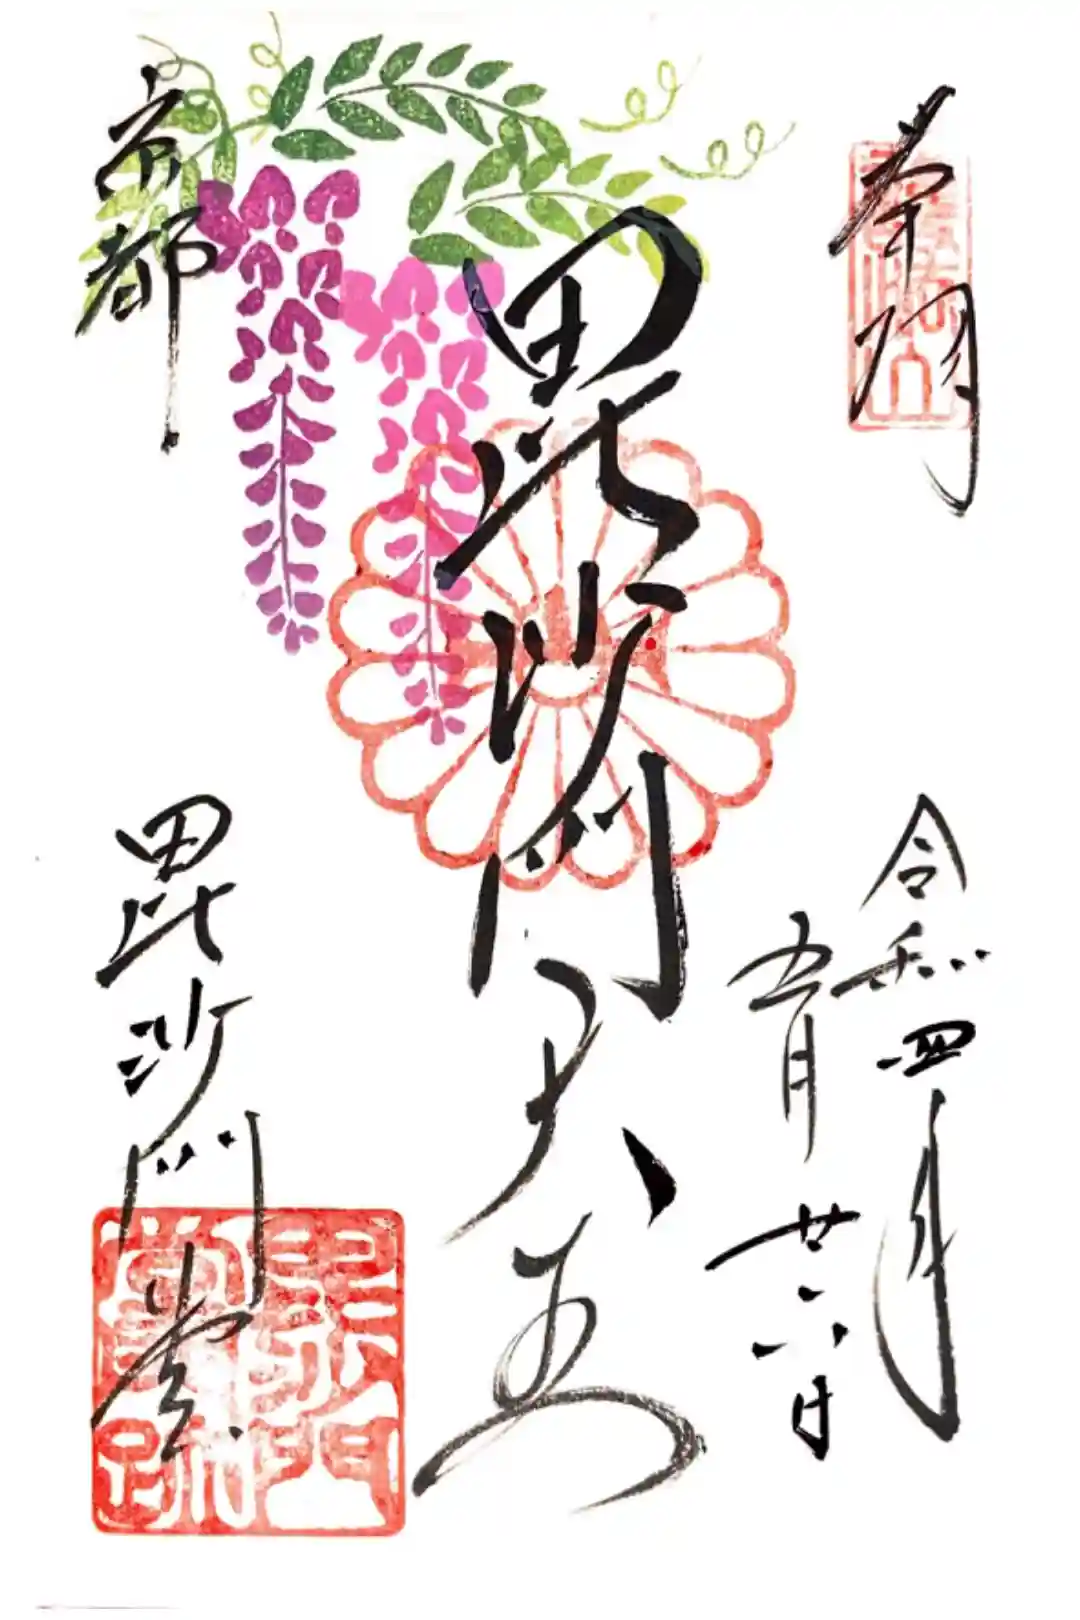 奉拝
令和四年
五月
廿六日
毘沙門天
京都
毘沙門堂
毘沙門
堂跡